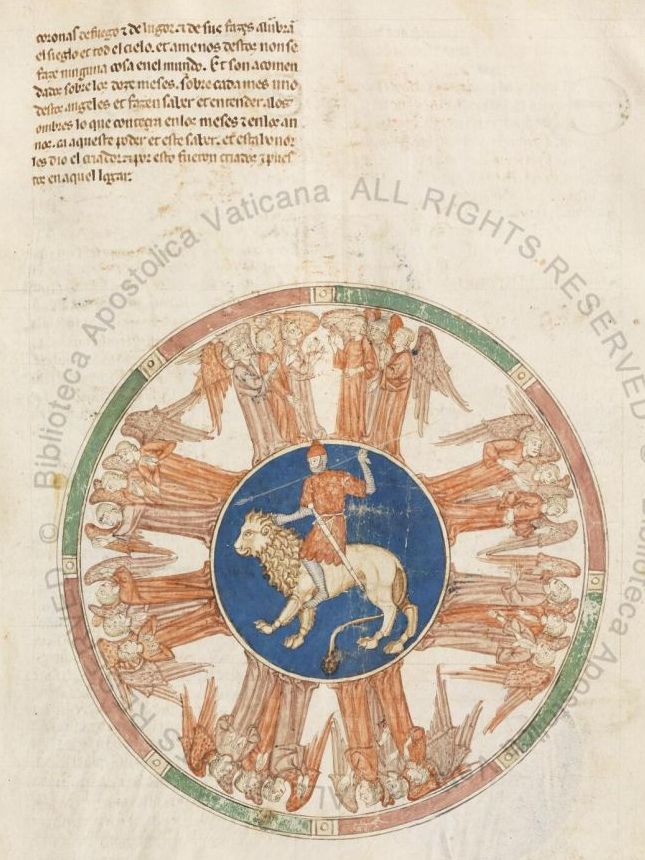 coronas de fuego ⁊ de lugor. ⁊ de sus fazes alũbrã
el sieglo et tod el cielo. et a menos destos non se
faze ninguna cosa en el mundo. Et son acomen
dados sobre los doze meses. sobre cada mes uno
destos angeles et fazen saber et entender. alos
ombres lo que conteçra en los meses ⁊ en los an
nos. ca aqueste poder et este saber. et esta honor
les dio el criador. ⁊ por esto fueron criados ⁊ pues
tos en aquel logar.
© Biblioteca Apostolica Vaticana ALL RIGHTS RESERVED ©